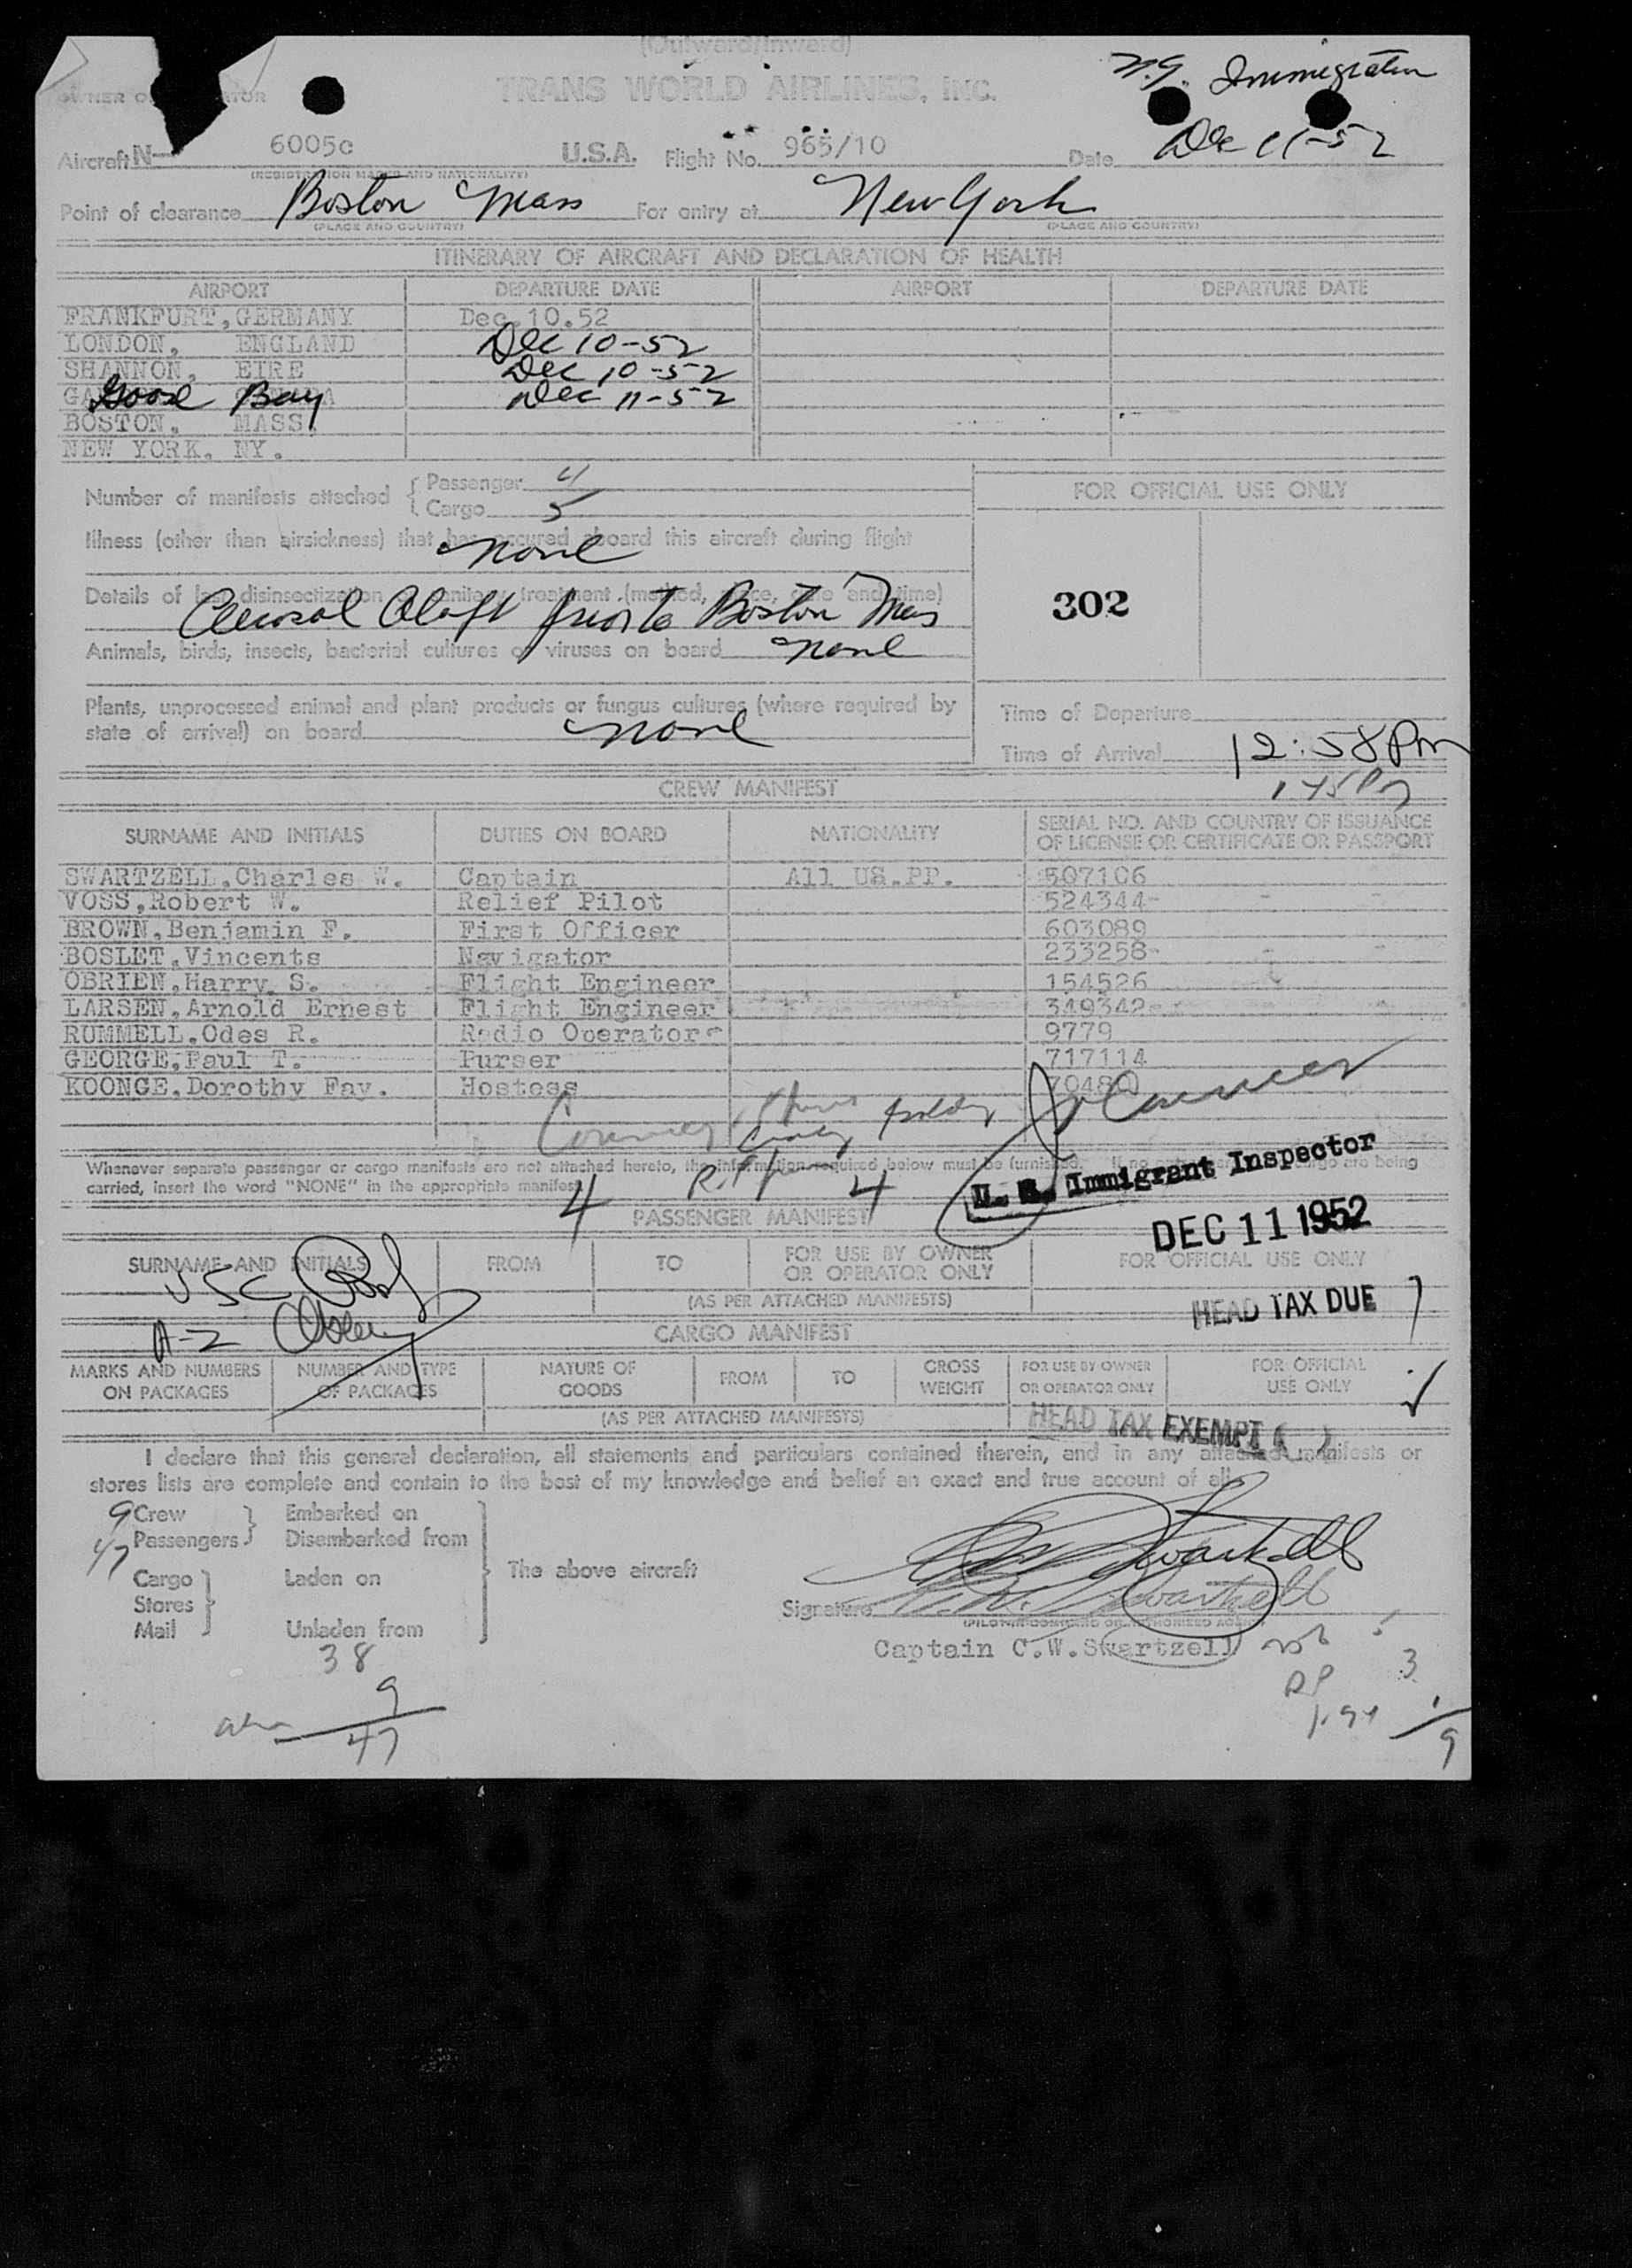 (Outward/Inward)
TRANS WORLD AIRLINES, INC.
N.Y. Immigration
OWNER
Aircraft N— 6005c U.S.A. Flight No. 965/10 Date Dec 11-52
(REGISTRATION MARKS AND NATIONALITY)
Point of clearance Boston Mass For entry at New York
(PLACE AND COUNTRY) (PLACE AND COUNTRY)
ITINERARY OF AIRCRAFT AND DECLARATION OF HEALTH
AIRPORT DEPARTURE DATE AIRPORT DEPARTURE DATE
FRANKFURT,GERMANY Dec.10.52
LONDON, ENGLAND Dec 10-52
SHANNON, EIRE Dec 10-52
Goose Bay Dec 11-52
BOSTON, MASS,
NEW YORK, NY.
Number of manifests attached { Passenger 4
Cargo 5
FOR OFFICIAL USE ONLY
Illness (other than airsickness) that has occured aboard this aircraft during flight
none
Details of last disinsectization sanitary treatment (method, place, date and time)
Aerosol Aloft prior to Boston Mass
302
Animals, birds, insects, bacterial cultures or viruses on board none
Plants, unprocessed animal and plant products or fungus cultures (where required by
state of arrival) on board none
Time of Departure
Time of Arrival 12:58 PM
1 45 PM
CREW MANIFEST
SURNAME AND INITIALS DUTIES ON BOARD NATIONALITY SERIAL NO. AND COUNTRY OF ISSUANCE OF LICENSE OR CERTIFICATE OR PASSPORT
SWARTZELL,Charles W. Captain All US.PP. 507106
VOSS,Robert W. Relief Pilot 524344-
BROWN,Benjamin F. First Officer 603089
BOSLET,Vincents Navigator 233258-
OBRIEN,Harry S. Flight Engineer 154526
LARSEN,Arnold Ernest Flight Engineer 349342-
RUMMELL,Odes R. Radio Operator- 9779
GEORGE,Paul T. Purser 717114
KOONGE,Dorothy Fay. Hostess 70480
Whenever separate passenger or cargo manifests are not attached hereto, the information required below must be furnished. being
carried, insert the word "NONE" in the appropriate manifest.
U. S. Immigrant Inspector
4 4
PASSENGER MANIFEST
DEC 11 1952
SURNAME AND INITIALS FROM TO FOR USE BY OWNER OR OPERATOR ONLY FOR OFFICIAL USE ONLY
USC
(AS PER ATTACHED MANIFESTS)
HEAD TAX DUE
A-2
CARGO MANIFEST
MARKS AND NUMBERS ON PACKAGES NUMBER AND TYPE OF PACKAGES NATURE OF GOODS FROM TO GROSS WEIGHT FOR USE BY OWNER OR OPERATOR ONLY FOR OFFICIAL USE ONLY
(AS PER ATTACHED MANIFESTS)
HEAD TAX EXEMPT
I declare that this general declaration, all statements and particulars contained therein, and in any attached manifests or
stores lists are complete and contain to the best of my knowledge and belief an exact and true account of all
9 Crew Embarked on
47 Passengers Disembarked from
The above aircraft
Cargo Laden on
Stores
Mail Unladen from
Signature
(PILOT-IN-COMMAND OR AUTHORIZED AGENT)
Captain C.W.Swartzell
38
9
47
3
1
9